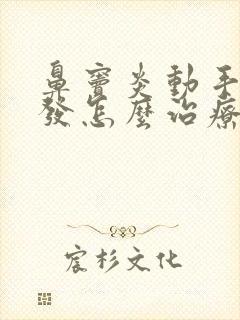 鼻竇炎動手
發怎麼治療
宸杉文化